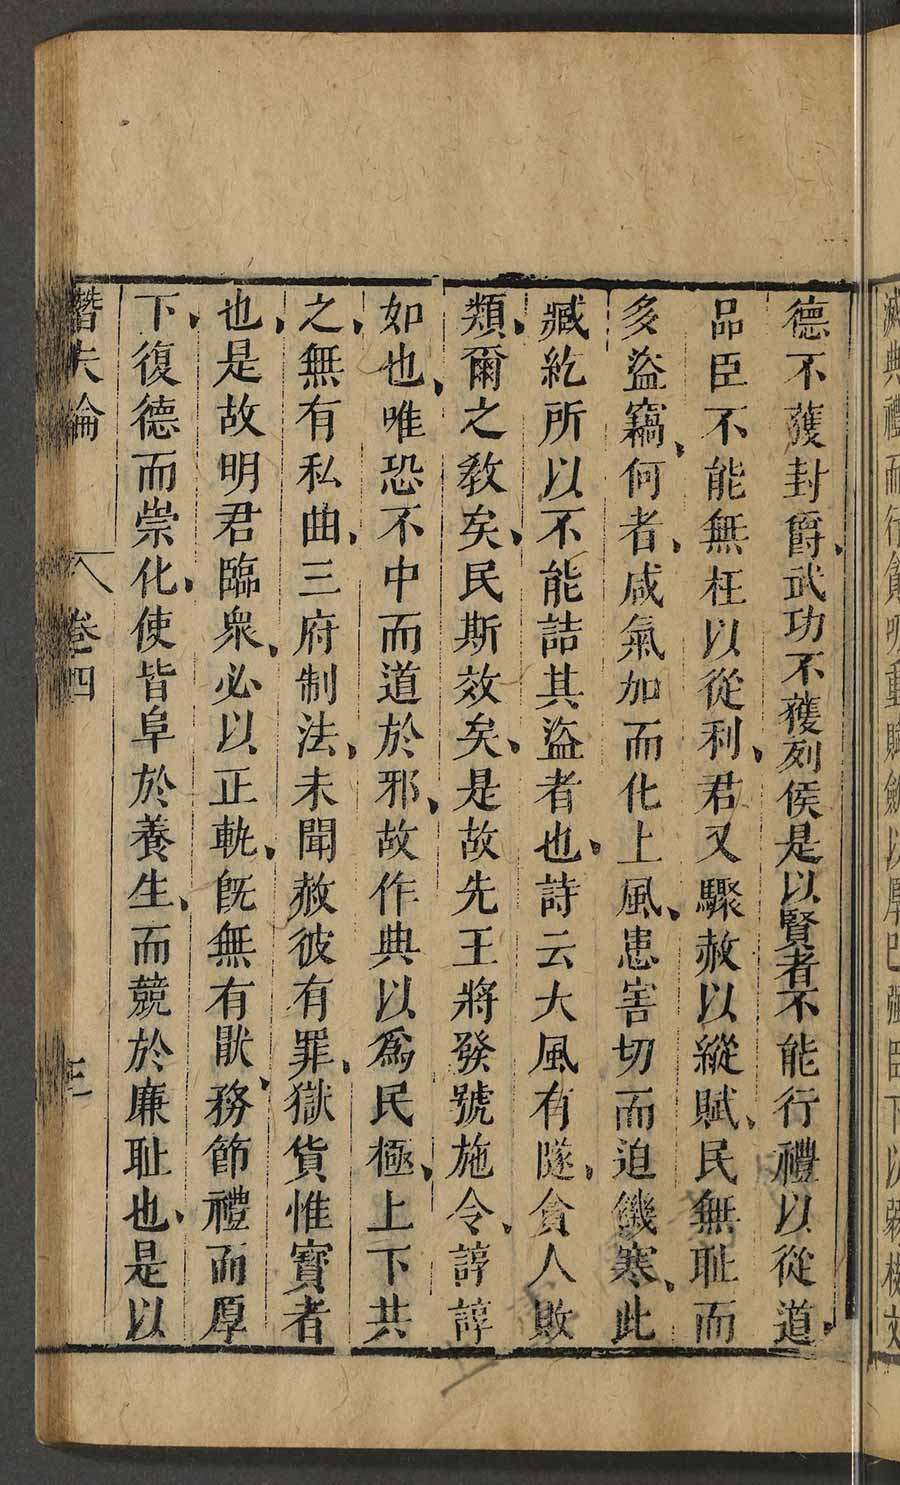 滅典禮而行貪叨重賦斂以厚巴彊臣下以弱枝文
德不獲封爵、武功不獲列侯是以賢者不能行禮以從道、
品臣不能無枉以從利、君又驟赦以縱賊、民無耻而
多盜竊、何者、咸氣加而化上風、患害切而迫饑寒、此
臧紇所以不能詰其盜者也、詩云大風有隧、貪人敗
類、爾之敎矣、民斯效矣、是故先王將發號施令、諄諄
如也、唯恐不中而道於邪、故作典以爲民極、上下共
之、無有私曲、三府制法、未聞赦彼有罪、獄貨惟寳者
也、是故明君臨衆、必以正軌、旣無有猒、務節禮而厚
下、復德而崇化、使皆阜於養生、而競於廉耻也、是以
潛夫論
卷四
三